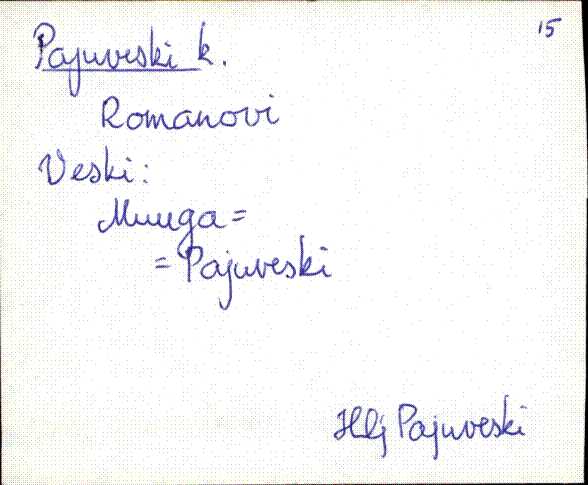 15
Pajuveski k.
Romanovi
Veski:
Muuga =
= Pajuveski
Hlj Pajuveski